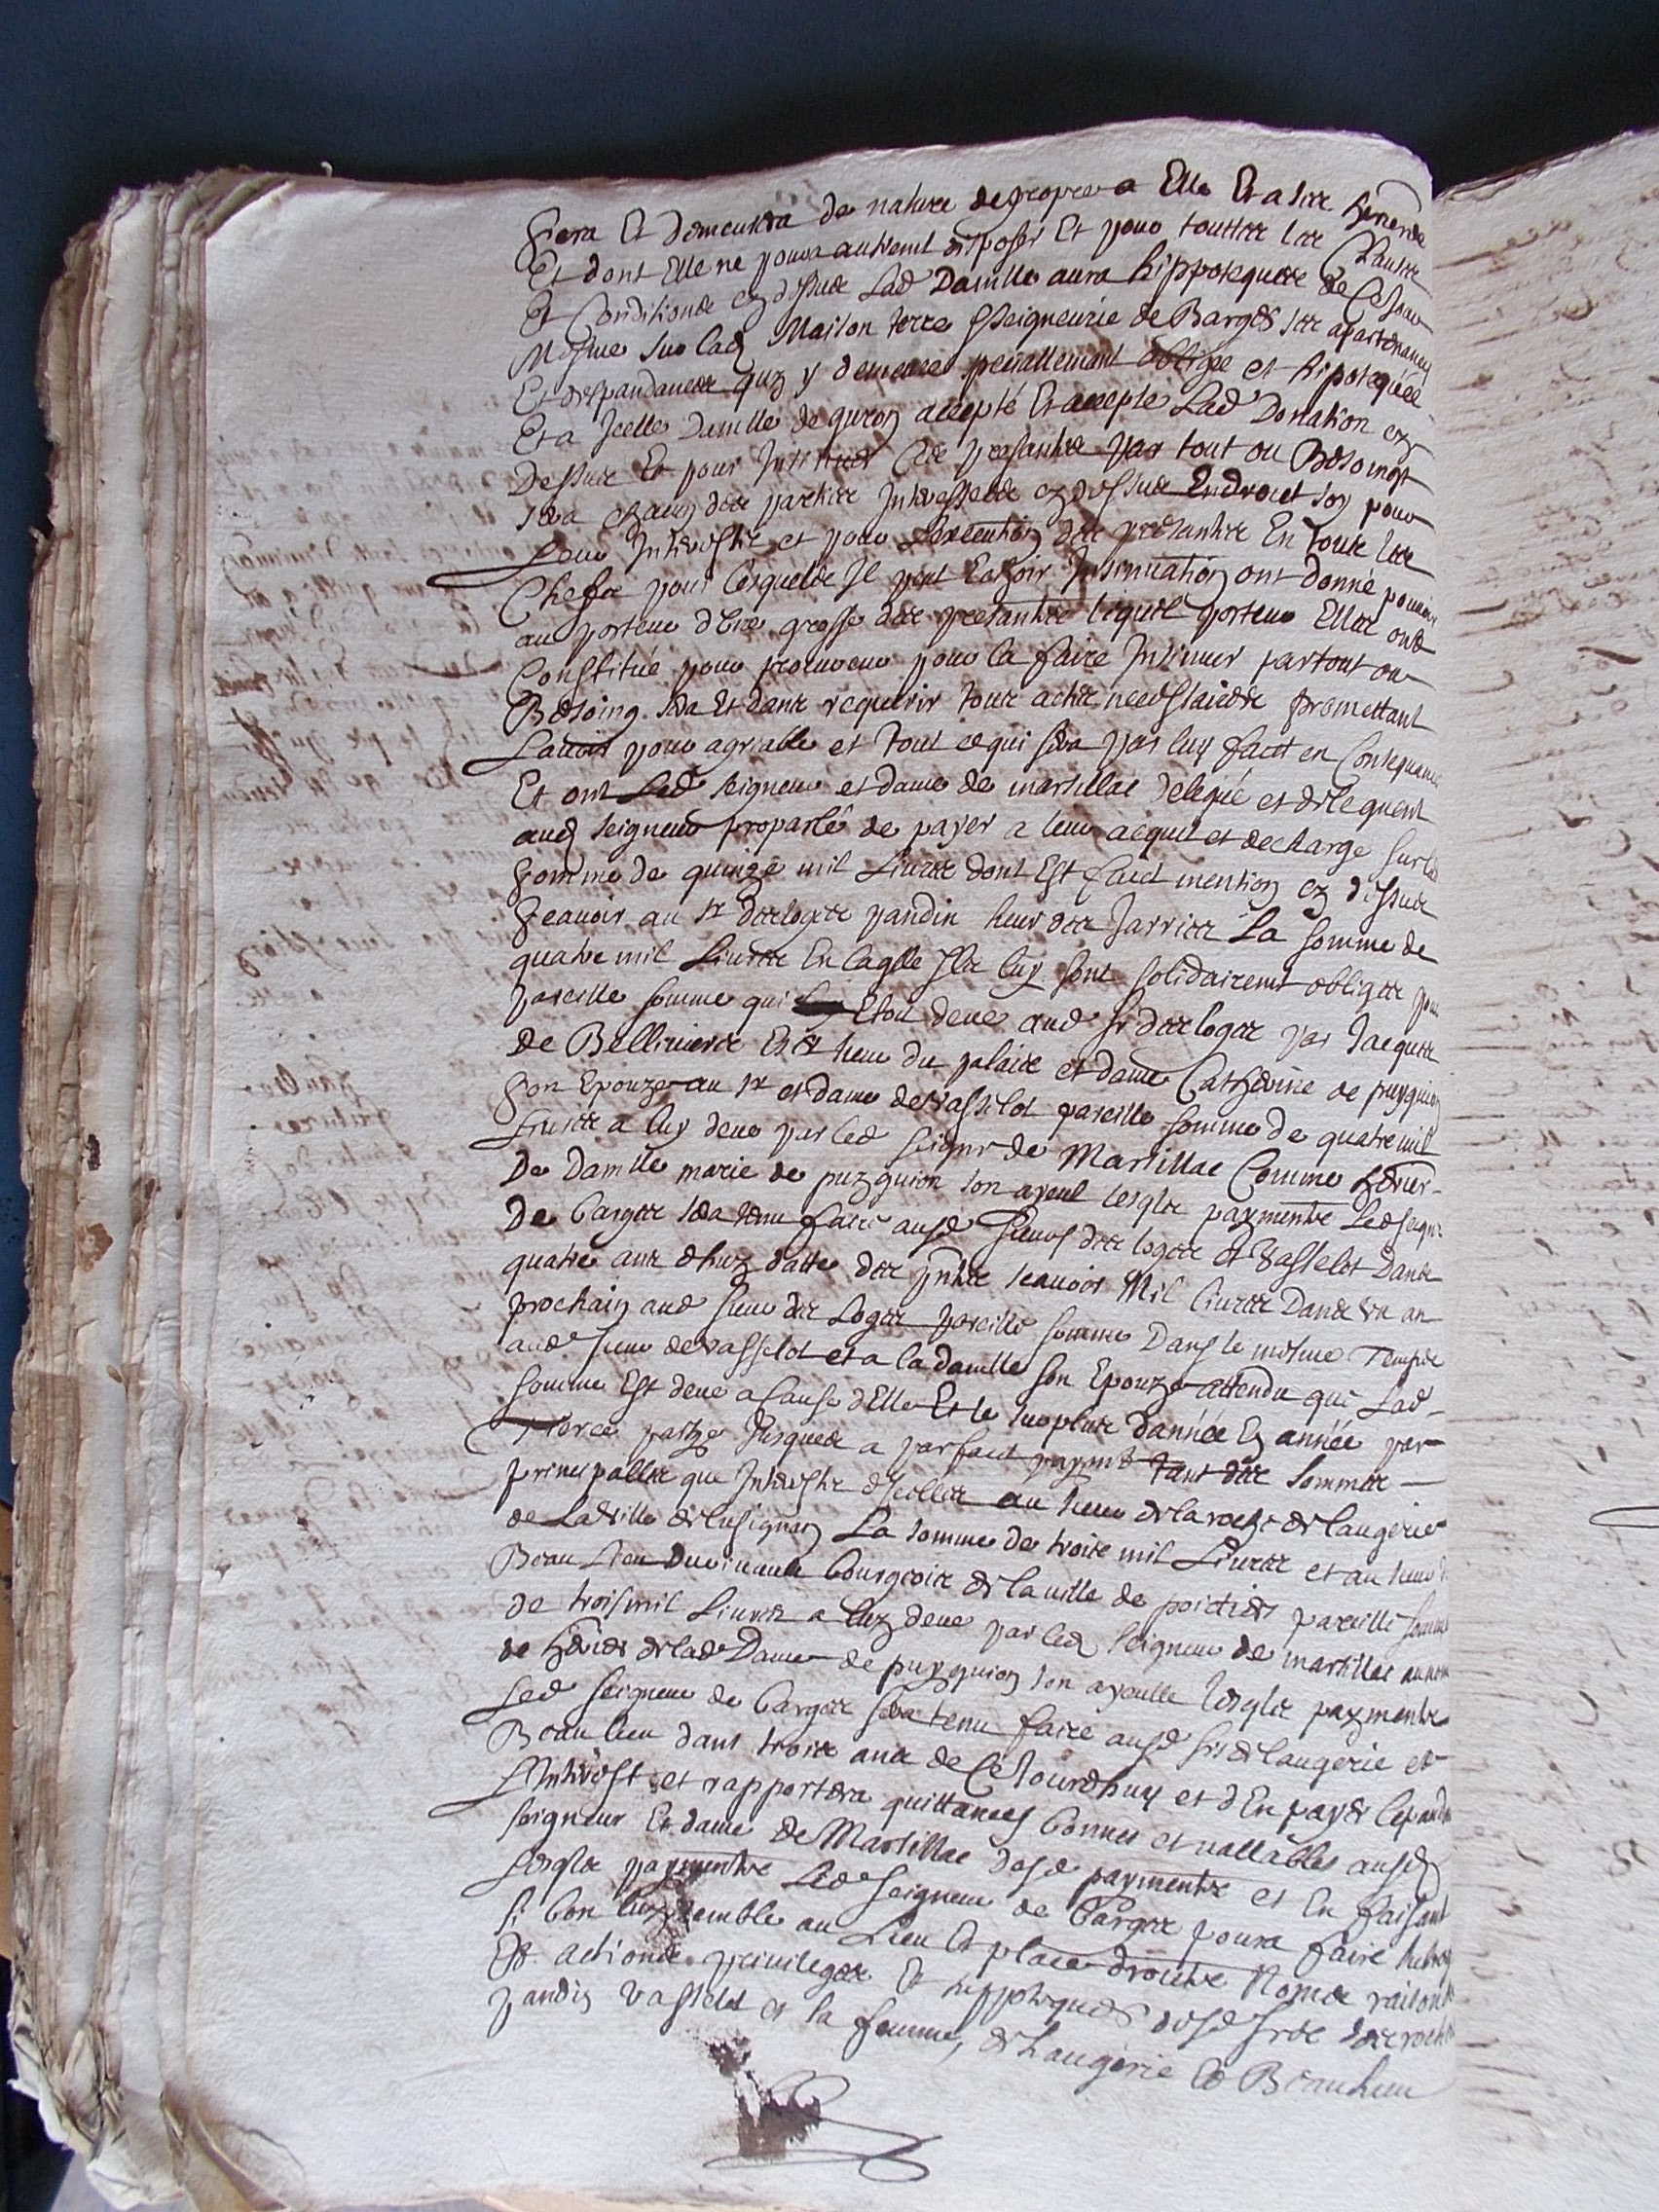 sera Et demeurera de nature de propre a Elle Et a ses
Et dont Elle ne poura autremt disposer Et pour touttes les Clauses
Et Conditions cy dessus Lad Damlle aura hippotecques de Ce Jour
Mesme sur lad Maison terre Seigneurie de Barges ses apartenances
Et despandances quy y demeure speciallement obligée et hipotequée
Et a Icelle Damlle de guron accepté Et accepte Lad Donation cy
Dessus Et pour Insinuer Ces presantes par tout ou Besoing
sera chacun des parties Interessees cy dessus Endroict soy pour
Leur Interestz et pour Lexecution des presantes En tous les
Chefs pour Lesquelles Il peut Eschoir Insinuation ont donné pouvoir
au porteur dEne grosse des presantes lequel porteur Elles ont
Constitué pour procureur pour la faire Insinuer partout ou
Besoing sera Et dans requerir tous actes necessaires promettant
Lavoir pour agreable et Tout ce qui sera par luy faict en Consequance
Et ont Led seigneur et dame de marsillac delegué et deleguent
aud seigneur proparlé de payer a leur acquit et decharge sur lad
somme de quinze mil Livres dont Est faict mention cy dessus
scavoir au sr des loges pandin sieur des Jarries La somme de
quatre mil Livres En laqlle Ils luy sont solidairemt obliges pour
pareille somme qui Etoit deue aud sr des loges par Jacques
de Bellivier sieur du palais et dame Catherine de puyguion
son Epouze au sr et dame de Vasselot pareille somme de quatre mil
Livres a luy deue par led seignr de Marsillac Comme heritier
De Damlle marie de puyguion son ayeul lesqls paymentz Led seignr
De Barges sera tenu faire ausd sieurs des loges et Vasselot Dans
quatre ans dhuy datte des pntes scavoir Mil livres Dans Un an
prochain aud sieur des Loges pareille somme Dans le mesme Temps
aud sieur de Vasselot et a la damlle son Epouze attendu que Lad
somme Est deue a Cause dElle Et le surplus dannée En année par
Tierce partye Jusques a parfaict paymt Tant des sommes
principalles que Interestz dIcelles au sieur de la roche de laugerie
de La Ville de lusignan La somme de trois mil Livres et au sieur de
Beau Lieu Bourgeois de la ville de poictiers pareille somme
de trois mil Livres a luy deue par led Seigneur de marsillac au nom
de herier de lad Dame de puyguion son ayeulle lesqls paymentz
Led Seigneur de Barges sera tenu faire ausd srs de laugerie et
Beaulieu dans trois ans de Ce Jourdhuy et dEn payer Cependant
LInterest et rapportera quittances bonnes et vallables ausd
seigneur Et dame de Marsillac desd paymentz et En faisant
Lesqls paymentz Led Seigneur de Barges poura faire subroger
si bon luy semble au Lieu Et place droictz Noms raisons
Et actions privileges Et hyppoteques desd srs des roches
pandin Vasselot et sa femme, de Laugerie Et Beaulieu